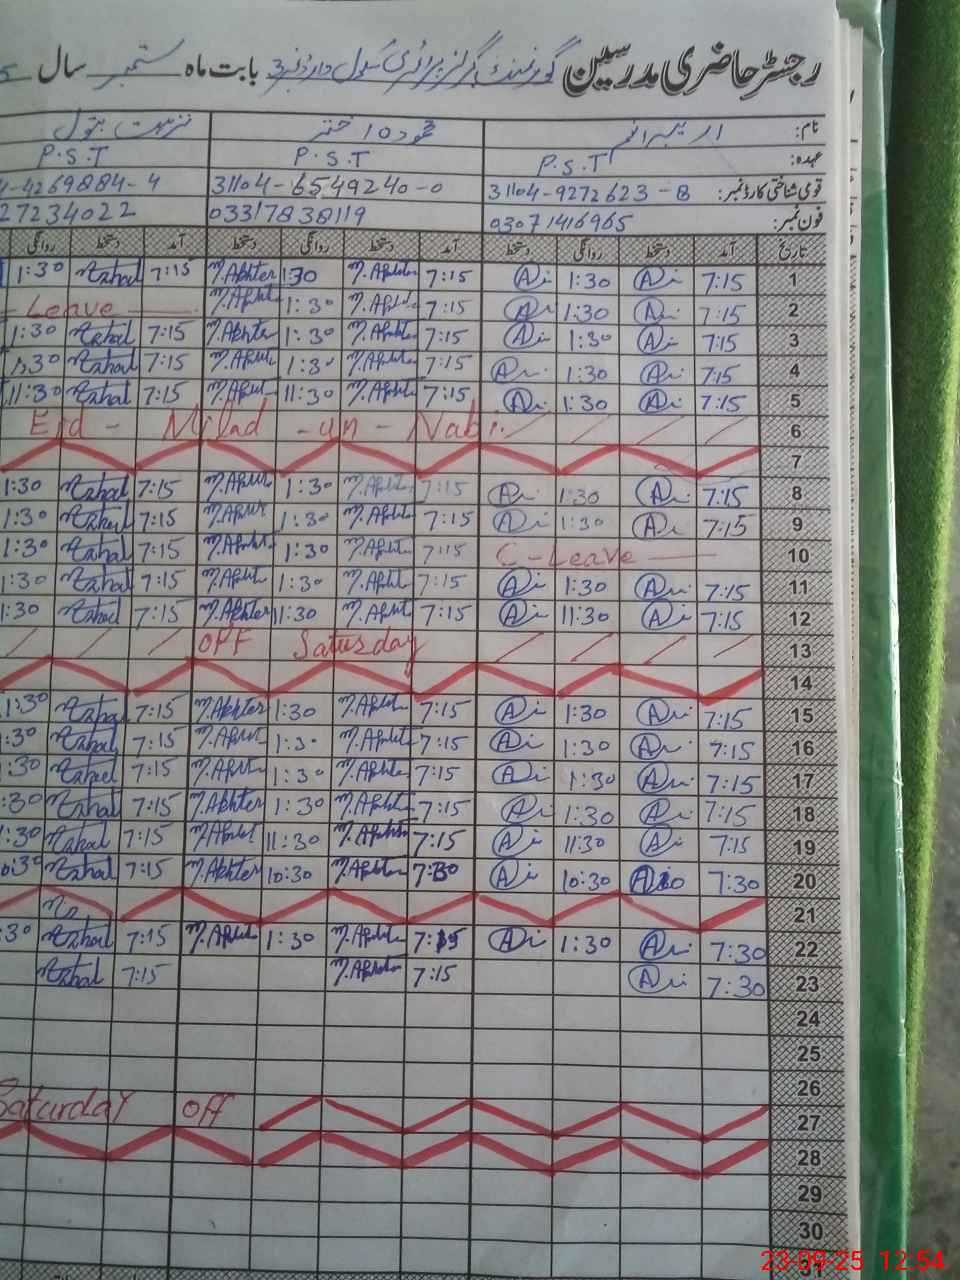 رجسٹر حاضری مدرسین گورنمنٹ گرلز پرائمری سکول وارڈ نمبر 3 بابت ماہ ستمبر سال
نام: اریبہ انعم محمودہ اختر نزہت بتول
عہدہ: P.S.T P.S.T P.S.T
قومی شناختی کارڈ نمبر: 31104-9272623-8 31104-6549240-0 4269884-4
فون نمبر: 03071416965 03317838119 27234022
تاریخ آمد دستخط روانگی دستخط آمد دستخط روانگی دستخط آمد دستخط روانگی
1:30 Nzhat 7:15 M.Akhter 1:30 M.Akhter 7:15 A 1:30 A 7:15 1
Leave M.Akhter 1:30 M.Akhter 7:15 A 1:30 A 7:15 2
1:30 Nzhat 7:15 M.Akhter 1:30 M.Akhter 7:15 A 1:30 A 7:15 3
1:30 Nzhat 7:15 M.Akhter 1:30 M.Akhter 7:15 A 1:30 A 7:15 4
11:30 Nzhat 7:15 M.Akhter 11:30 M.Akhter 7:15 A 1:30 A 7:15 5
Eid - Milad - un - Nabi 6
7
1:30 Nzhat 7:15 M.Akhter 1:30 M.Akhter 7:15 A 1:30 A 7:15 8
1:30 Nzhat 7:15 M.Akhter 1:30 M.Akhter 7:15 A 1:30 A 7:15 9
1:30 Nzhat 7:15 M.Akhter 1:30 M.Akhter 7:15 C-Leave 10
1:30 Nzhat 7:15 M.Akhter 1:30 M.Akhter 7:15 A 1:30 A 7:15 11
1:30 Nzhat 7:15 M.Akhter 11:30 M.Akhter 7:15 A 11:30 A 7:15 12
OFF Saturday 13
14
1:30 Nzhat 7:15 M.Akhter 1:30 M.Akhter 7:15 A 1:30 A 7:15 15
:30 Nzhat 7:15 M.Akhter 1:30 M.Akhter 7:15 A 1:30 A 7:15 16
:30 Nzhat 7:15 M.Akhter 1:30 M.Akhter 7:15 A 1:30 A 7:15 17
:30 Nzhat 7:15 M.Akhter 1:30 M.Akhter 7:15 A 1:30 A 7:15 18
1:30 Nzhat 7:15 M.Akhter 11:30 M.Akhter 7:15 A 11:30 A 7:15 19
0:30 Nzhat 7:15 M.Akhter 10:30 M.Akhter 7:30 A 10:30 A 7:30 20
21
:30 Nzhat 7:15 M.Akhter 1:30 M.Akhter 7:15 A 1:30 A 7:30 22
Nzhat 7:15 M.Akhter 7:15 A 7:30 23
24
25
26
Saturday OFF 27
28
29
30
31
23-09-25 12:54